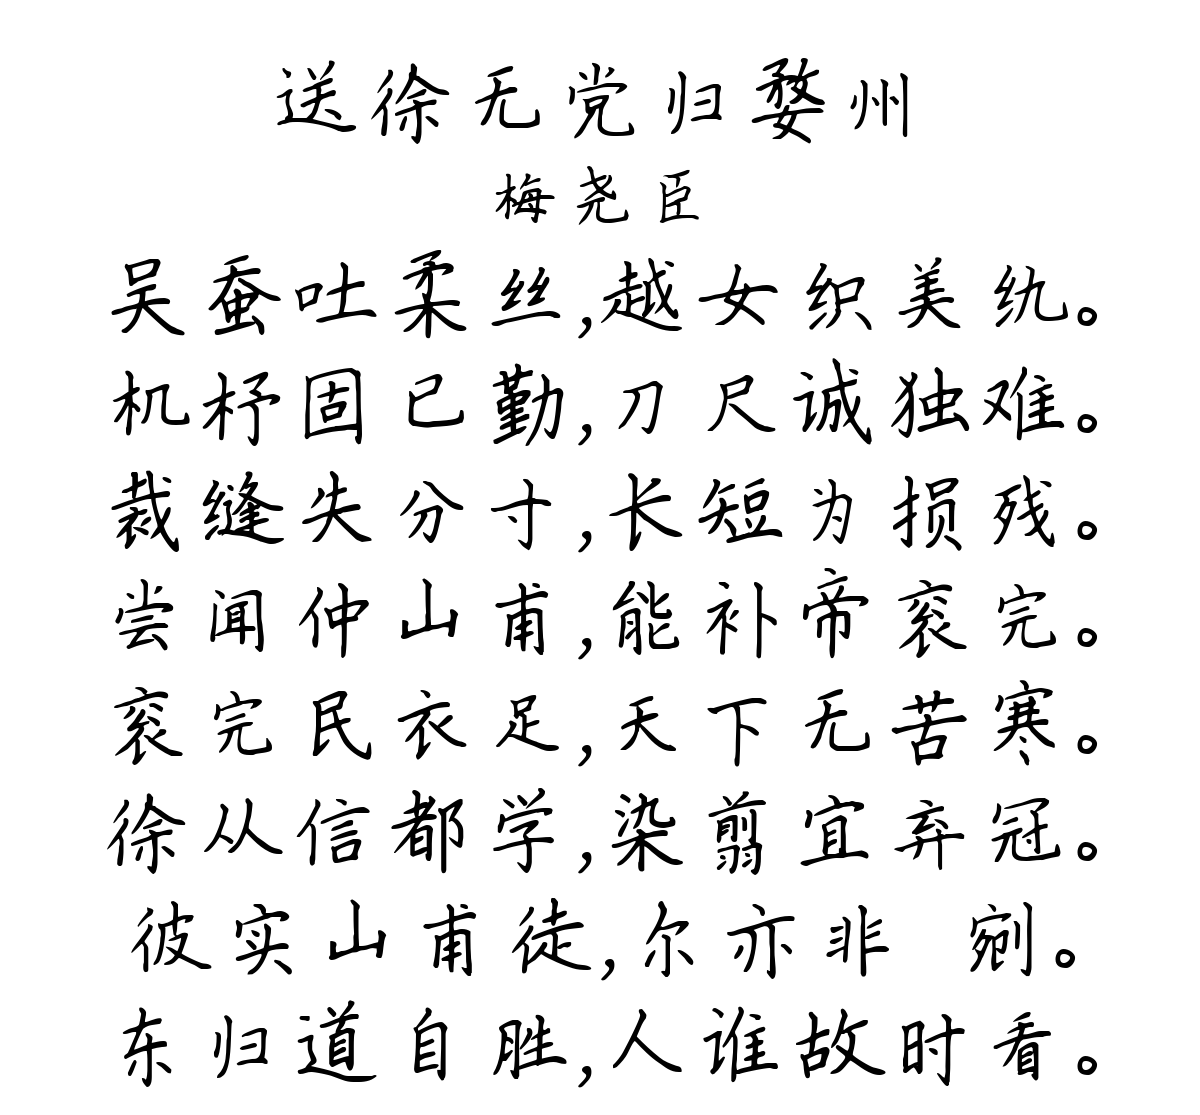 送徐无党归婺州
梅尧臣
吴蚕吐柔丝,越女织美纨。
机杼固已勤,刀尺诚独难。
裁缝失分寸,长短为损残。
尝闻仲山甫,能补帝衮完。
衮完民衣足,天下无苦寒。
徐从信都学,染翦宜弃冠。
彼实山甫徒,尔亦非 剜。
东归道自胜,人谁故时看。